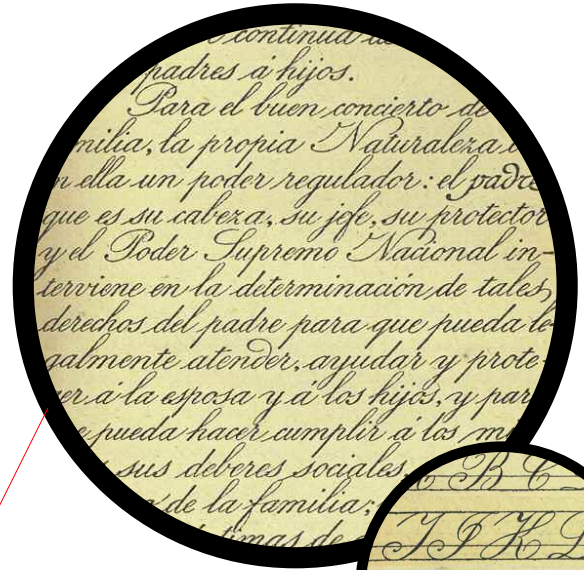 continua de
padres á hijos.
Para el buen concierto de
milia, la propia Naturaleza
n ella un poder regulador: el padre
que es su cabeza, su jefe, su protector
y el Poder Supremo Nacional in-
terviene en la determinación de tales
derechos del padre para que pueda le-
galmente atender, ayudar y prote-
er á la esposa y á los hijos, y par
e pueda hacer cumplir á los m
sus deberes sociales,
de la familia;
timas de
B C
I J K L